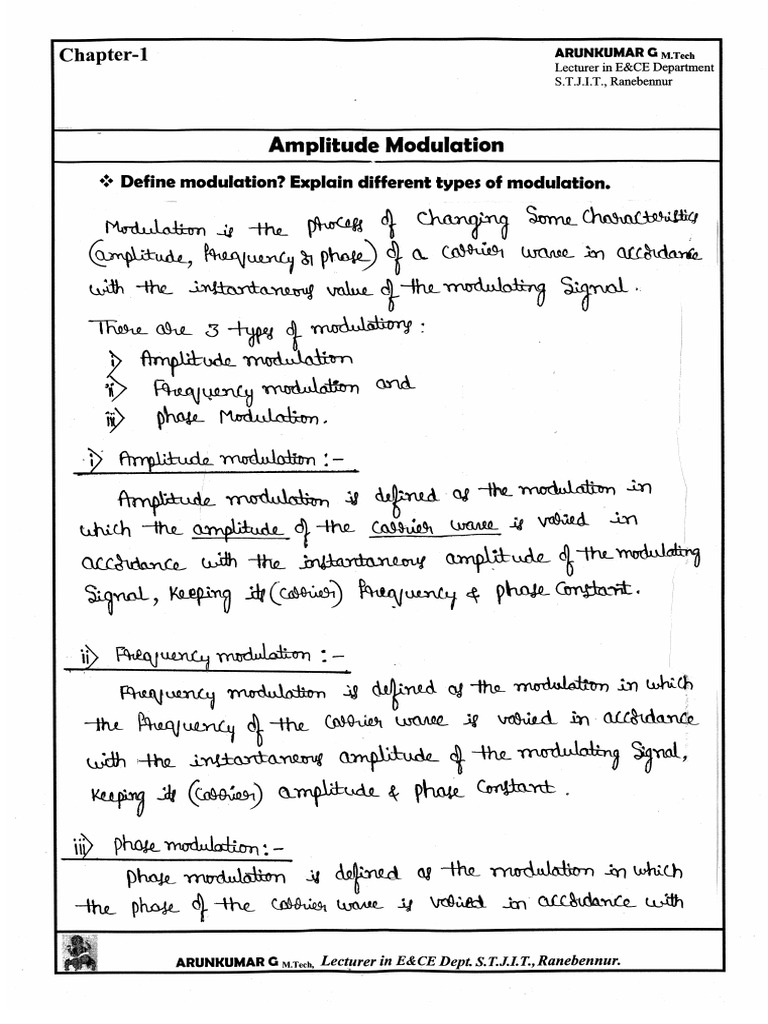 Chapter-1
ARUNKUMAR G M.Tech
Lecturer in E&CE Department
S.T.J.I.T., Ranebennur
Amplitude Modulation
❖ Define modulation? Explain different types of modulation.
Modulation is the process of changing Some characteristics
(amplitude, frequency or phase) of a carrier wave in accordance
with the instantaneous value of the modulating Signal.
There are 3 types of modulations:
i) Amplitude modulation
ii) Frequency modulation and
iii) phase Modulation.
i) Amplitude modulation :-
Amplitude modulation is defined as the modulation in
which the amplitude of the carrier wave is varied in
accordance with the instantaneous amplitude of the modulating
Signal, keeping its (carrier) frequency & phase constant.
ii) Frequency modulation :-
Frequency modulation is defined as the modulation in which
the frequency of the carrier wave is varied in accordance
with the instantaneous amplitude of the modulating Signal,
keeping its (carrier) amplitude & phase constant.
iii) phase modulation :-
phase modulation is defined as the modulation in which
the phase of the carrier wave is varied in accordance with
ARUNKUMAR G M.Tech, Lecturer in E&CE Dept. S.T.J.I.T., Ranebennur.